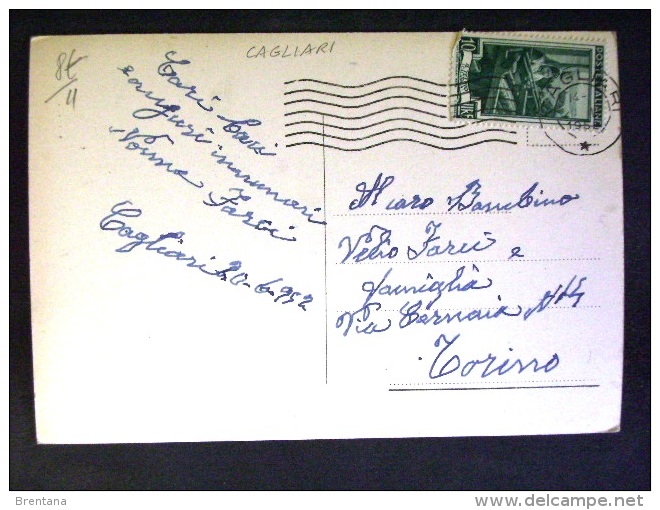 8€
11
CAGLIARI
Cari baci
e auguri innumeri
Norma Farci
Cagliari 26-6-952
10
LIRE
POSTE ITALIANE
CAGLIARI
Al caro Bambino
Velio Farci e
famiglia
Via Cernaia
Torino
Brentana
delcampe.net